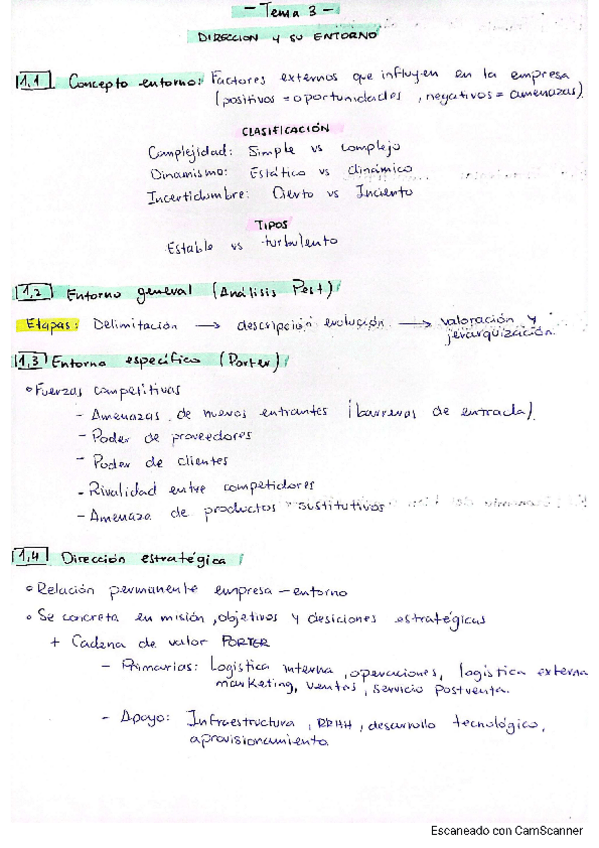 - Tema 3 -
DIRECCION y SU ENTORNO
1.1 Concepto entorno: Factores externos que influyen en la empresa
(positivos = oportunidades, negativos = amenazas).
CLASIFICACIÓN
Complejidad: Simple vs complejo
Dinamismo: Estático vs dinámico
Incertidumbre: Cierto vs Incierto
TIPOS
Estable vs turbulento
1.2 Entorno general (Análisis Pest)
Etapas: Delimitación → descripción evolución → valoración y
jerarquización.
1.3 Entorno específico (Porter)
• Fuerzas competitivas
- Amenazas de nuevos entrantes (barreras de entrada)
- Poder de proveedores
- Poder de clientes
- Rivalidad entre competidores
- Amenaza de productos sustitutivos
1.4 Dirección estratégica
• Relación permanente empresa - entorno
• Se concreta en misión, objetivos y desiciones estratégicas
+ Cadena de valor PORTER
- Primarias: Logística interna, operaciones, logística externa
marketing, ventas, servicio postventa.
- Apoyo: Infraestructura, RRHH, desarrollo tecnológico,
aprovisionamiento.
Escaneado con CamScanner